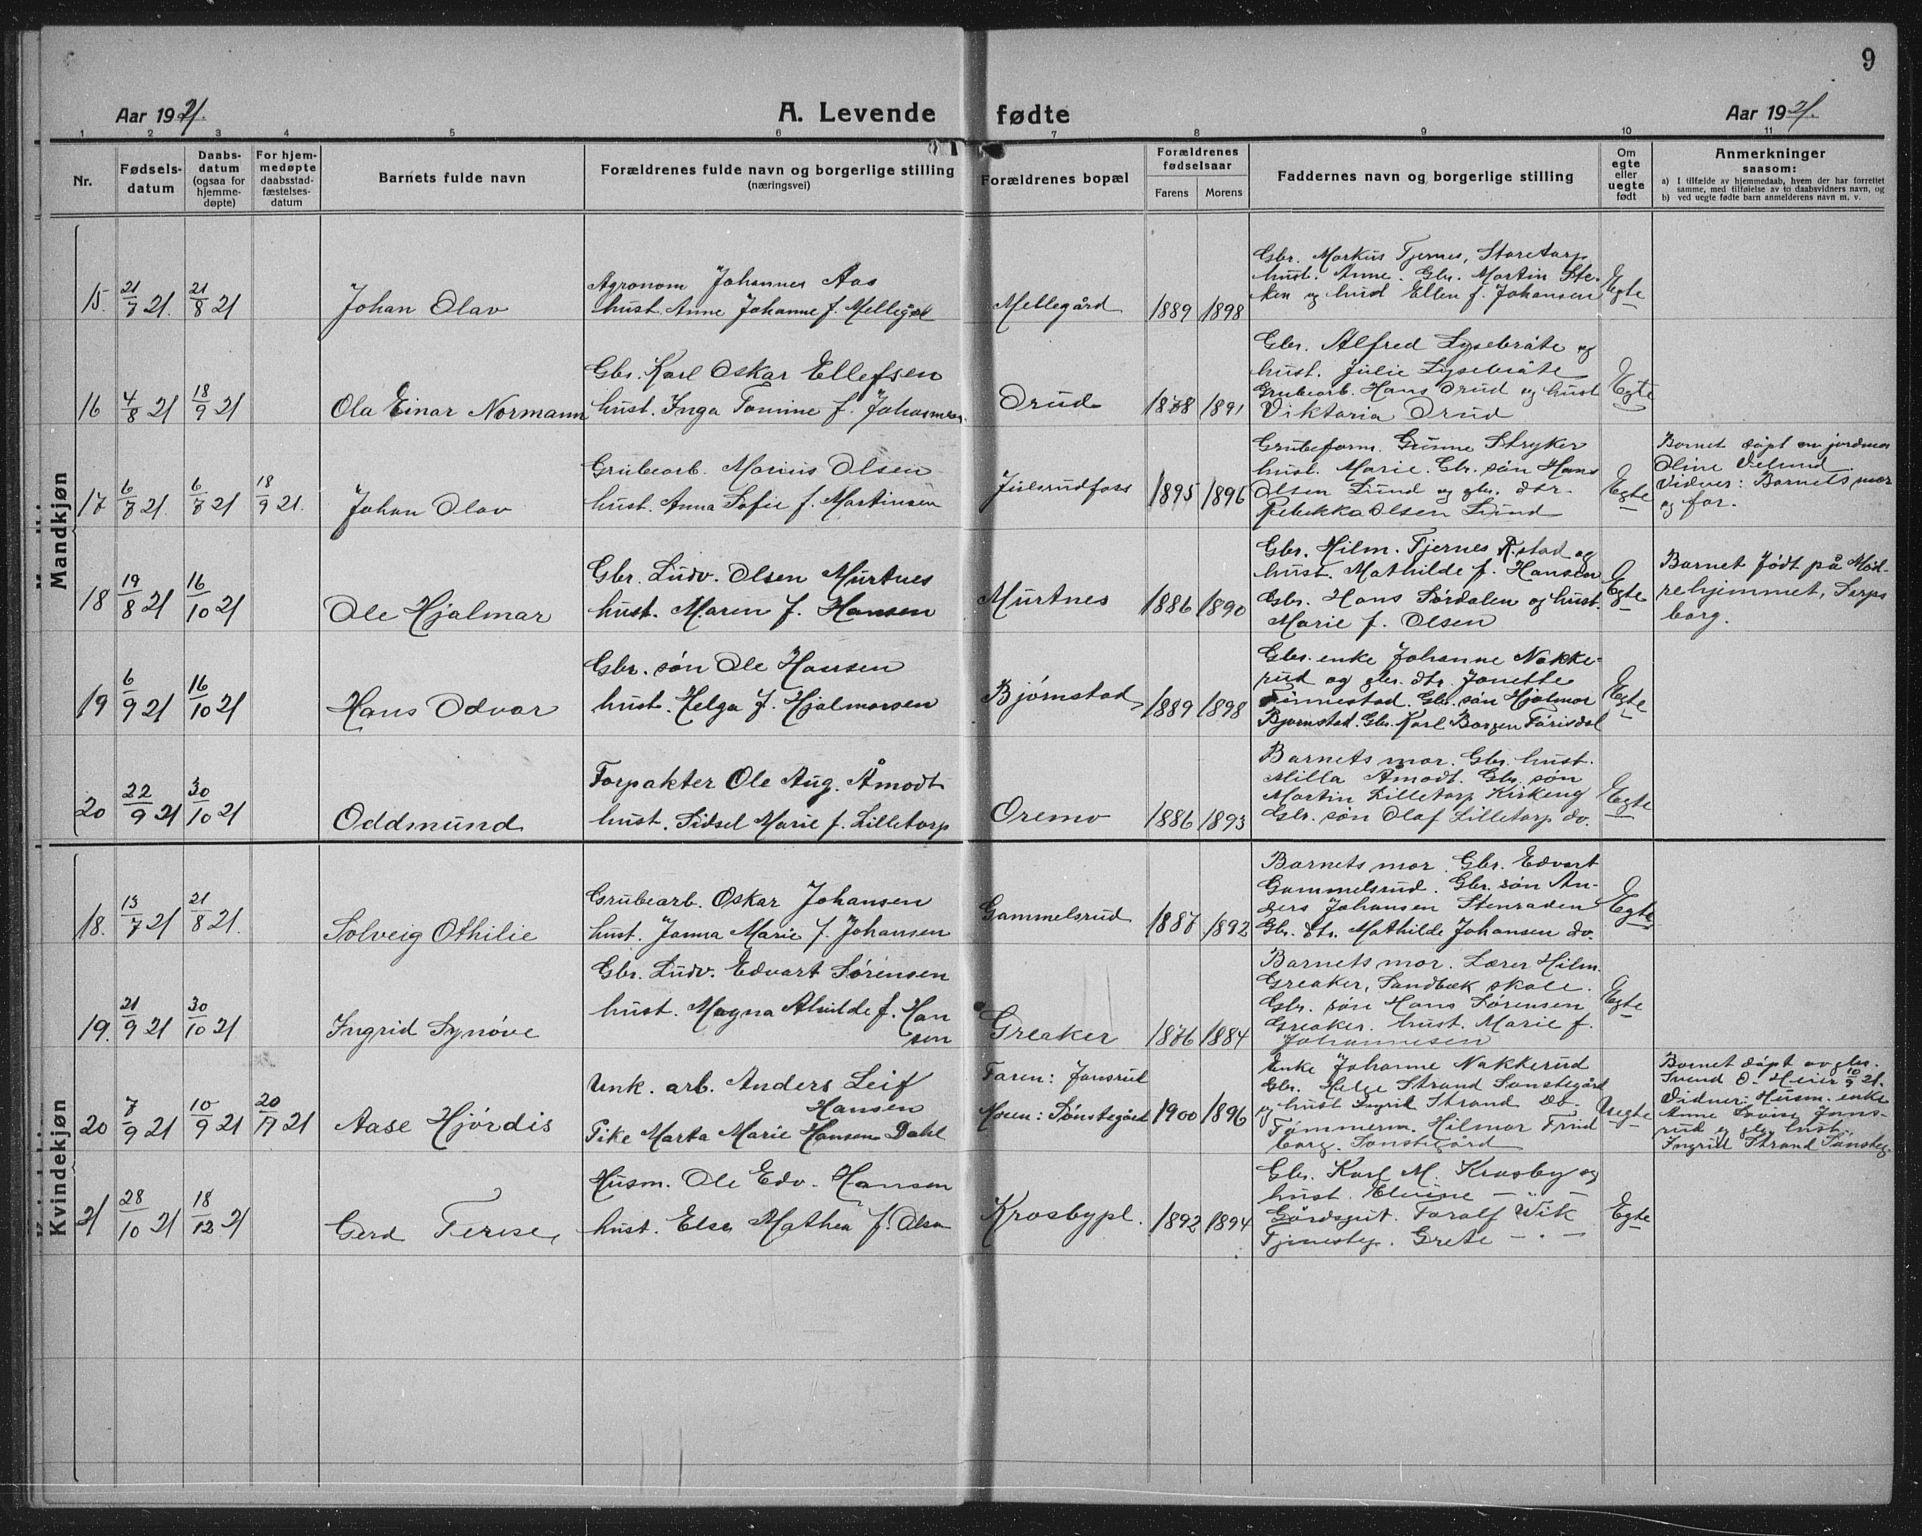 9
Aar 1921. A. Levende fødte Aar 1921.
1 2 3 4 5 6 7 8 9 10 11
Nr. Fødselsdatum Daabsdatum (ogsaa for hjemmedøpte) For hjemmedøpte daabsstadfæstelsesdatum Barnets fulde navn Forældrenes fulde navn og borgerlige stilling (næringsvei) Forældrenes bopæl Forældrenes fødselsaar Farens Morens Faddernes navn og borgerlige stilling Om egte eller uegte født Anmerkninger saasom:
a) I tilfælde av hjemmedaab, hvem der har forrettet samme, med tilføielse av to daabsvidners navn, og
b) ved uegte fødte barn anmelderens navn m. v.
Mandkjøn
15. 21/7 21. 21/8 21 Johan Olav
Agronom Johannes Aas
hust. Anne Johanne f. Mellegård
Mellegård 1889 1898
Gbr. Markus Tjernes, Storetorp
hust. Anne. Gbr. Martin Ste-
ken og hust Ellen f. Johansen
Egte
16 4/8 21 18/9 21 Ola Einar Normann
Gbr. Karl Oskar Ellefsen
hust. Inga Tomine f. Johannesen.
Orud 1888 1891
Gbr. Alfred Lysebråte og
hust. Julie Lysebråte
Grubearb. Hans Orud og hust
Viktoria Orud
Egte
17 6/7 21. 6/7 21 18/9 21. Johan Olav
Grubearb. Marius Olsen
hust. Anna Sofie f. Martinsen
Julsrudfoss 1895 1896
Grubeform. Gunne Stryker
hust. Marie. Gbr. søn Hans
Olsen Lund og gbr. dtr.
Rebekka Olsen Lund
Egte
Barnet døpt av jordmor
Oline
Vidner: Barnets mor
og far.
18 19/8 21 16/10 21 Ole Hjalmar
Gbr. Ludv. Olsen Murtnes
hust. Maren f. Hansen
Murtnes 1886 1890
Gbr. Hilm. Tjernes og
hust. Mathilde f. Hansen
Gbr. Hans Sørdalen og hust.
Marie f. Olsen
Egte
Barnet født på Mød-
rehjemmet, Sarps
borg.
19 6/9 21 16/10 21 Hans Odvar
Gbr. søn Ole Hansen
hust. Helga f. Hjalmarsen
Bjørnstad 1889 1898
Gbr. enke Johanne Nakke-
rud og gbr. dtr. Janette
Tinnestad. Gbr. søn Hjalmar
Bjørnstad. Gbr. Karl Borgen
Egte
20 22/9 21 30/10 21 Oddmund
Forpakter Ole Aug. Åmodt
hust. Sidsel Marie f. Lilletorp
Oremo 1886 1893
Barnets mor. Gbr. hust.
Milla Åmodt. Gbr. søn
Martin Lilletorp Kirkeng
Gbr. søn Olaf Lilletorp do.
Egte
Kvindekjøn
18. 13/7 21 21/8 21. Solveig Othilie
Grubearb. Oskar Johansen
hust. Janna Marie f. Johansen
Gammelsrud 1887 1892
Barnets mor. Gbr. Edvart
Gammelsrud. Gbr. søn An-
ders Johansen Stenraden
Gbr. dtr. Mathilde Johansen do.
Egte
19. 21/9 21 30/10 21 Ingrid Synøve
Gbr. Ludv. Edvart Sørensen
hust. Magna Alvilde f. Han
sen
Greaker 1876 1884
Barnets mor. Lærer Hilm.
Greaker, Sandbæk skole.
Gbr. søn Hans Sørensen
Greaker. hust. Marie f.
Johannesen
Egte
20 7/9 21 10/9 21 20/11 21 Aase Hjørdis
Unk. arb. Anders Leif
Hansen
Pike Marta Marie Hansen Dahl
Faren: Jonsrud
Moren: Sønstegård 1900 1896
Enke Johanne Nakkerud
Gbr. Helge Strand Sønstegård
og hust Ingrid Strand do-
Tømmerm. Hilmar Frid
borg. Sønstegård
Uegte
Barnet døpt av gbr.
Svend O. Meier 10/9 21.
Vidner: Husm. enke
Anne Lovise Jons-
rud og gbr. hust.
Ingrid Strand Sønsteg.
21 28/10 21 18/12 21 Gerd Terese
Husm. Ole Edv. Hansen
hust. Else Mathea f. Olsen
Krosbypl. 1892 1894
Gbr. Karl M. Krosby og
hust. Elvine — " —
Gårdsgut. Toralf Wik
Tjenestep. Grete — . —
Egte